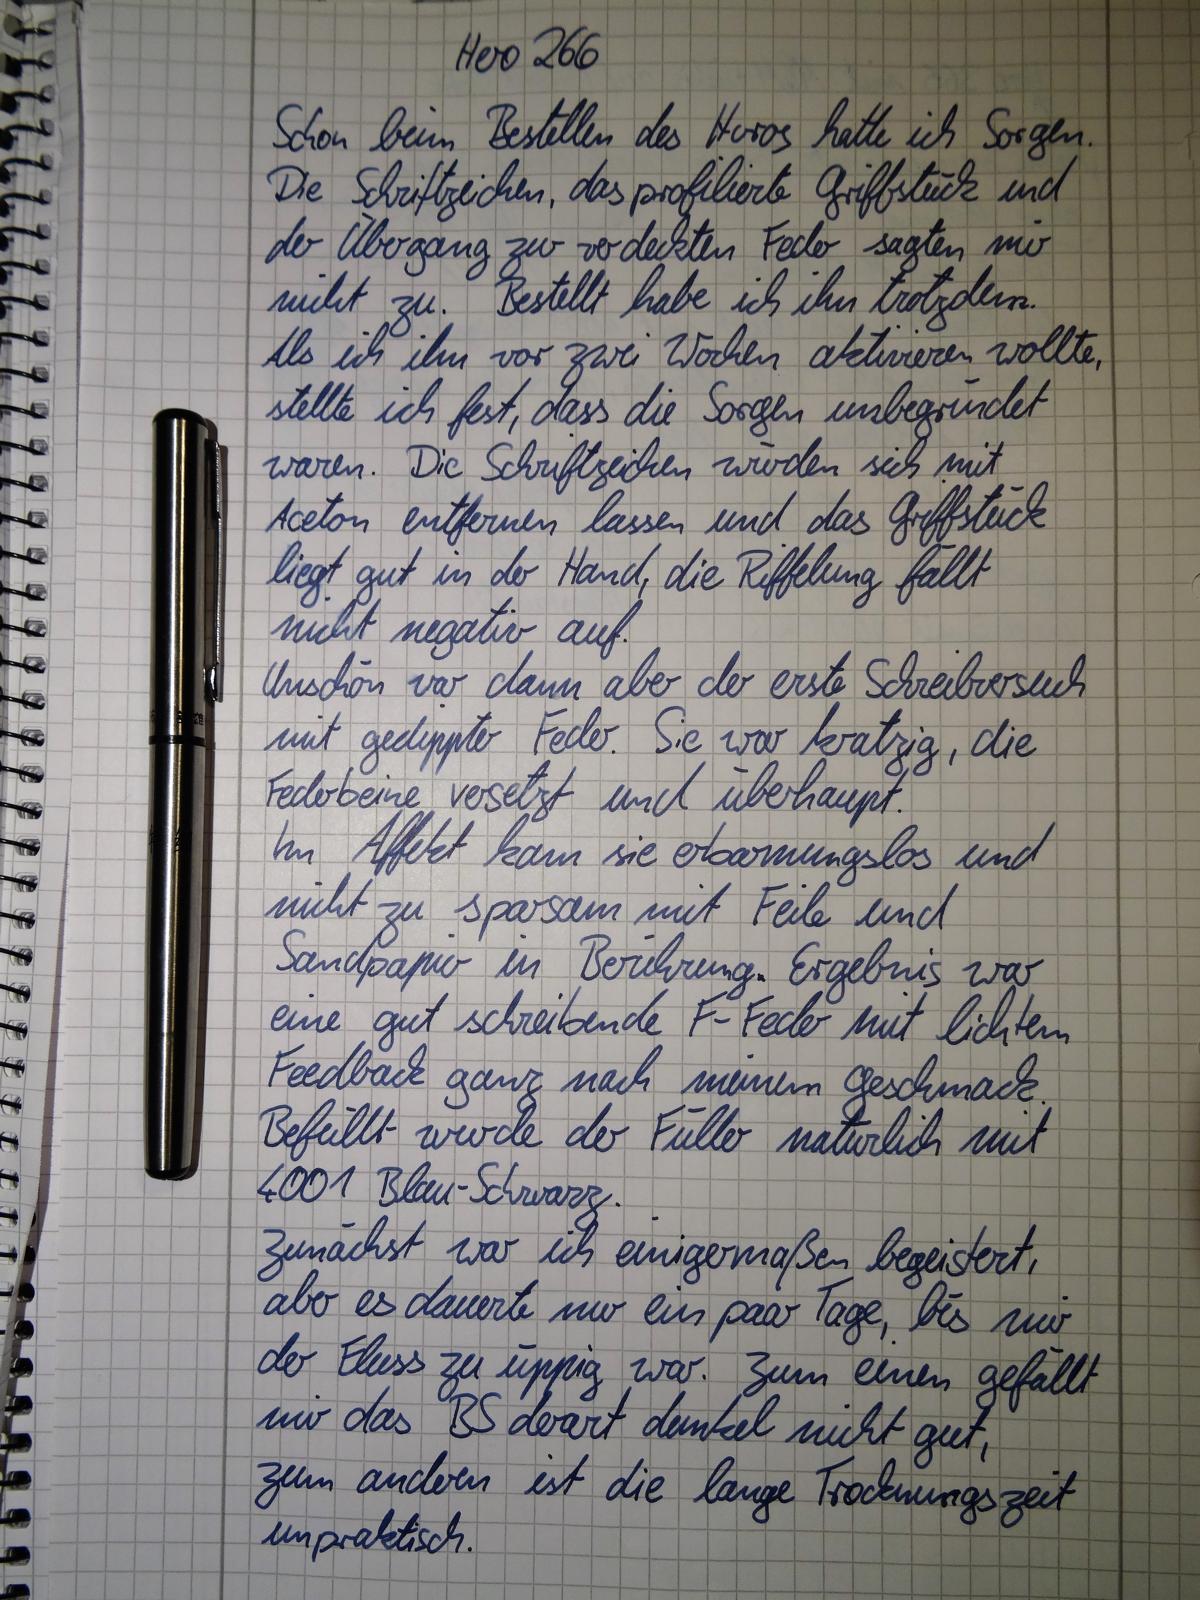 Hero 266
Schon beim Bestellen des Heros hatte ich Sorgen.
Die Schriftzeichen, das profilierte Griffstück und
der Übergang zur verdeckten Feder sagten mir
nicht zu. Bestellt habe ich ihn trotzdem.
Als ich ihn vor zwei Wochen aktivieren wollte,
stellte ich fest, dass die Sorgen unbegründet
waren. Die Schriftzeichen würden sich mit
Aceton entfernen lassen und das Griffstück
liegt gut in der Hand, die Riffelung fällt
nicht negativ auf.
Unschön war dann aber der erste Schreibversuch
mit gedippter Feder. Sie war kratzig, die
Federbeine versetzt und überhaupt.
Im Affekt kam sie erbarmungslos und
nicht zu sparsam mit Feile und
Sandpapier in Berührung. Ergebnis war
eine gut schreibende F-Feder mit lichtem
Feedback ganz nach meinem Geschmack.
Befüllt wurde der Füller natürlich mit
4001 Blau-Schwarz.
Zunächst war ich einigermaßen begeistert,
aber es dauerte nur ein paar Tage, bis mir
der Fluss zu üppig war. Zum einen gefällt
mir das BS derart dunkel nicht gut,
zum andern ist die lange Trocknungszeit
unpraktisch.